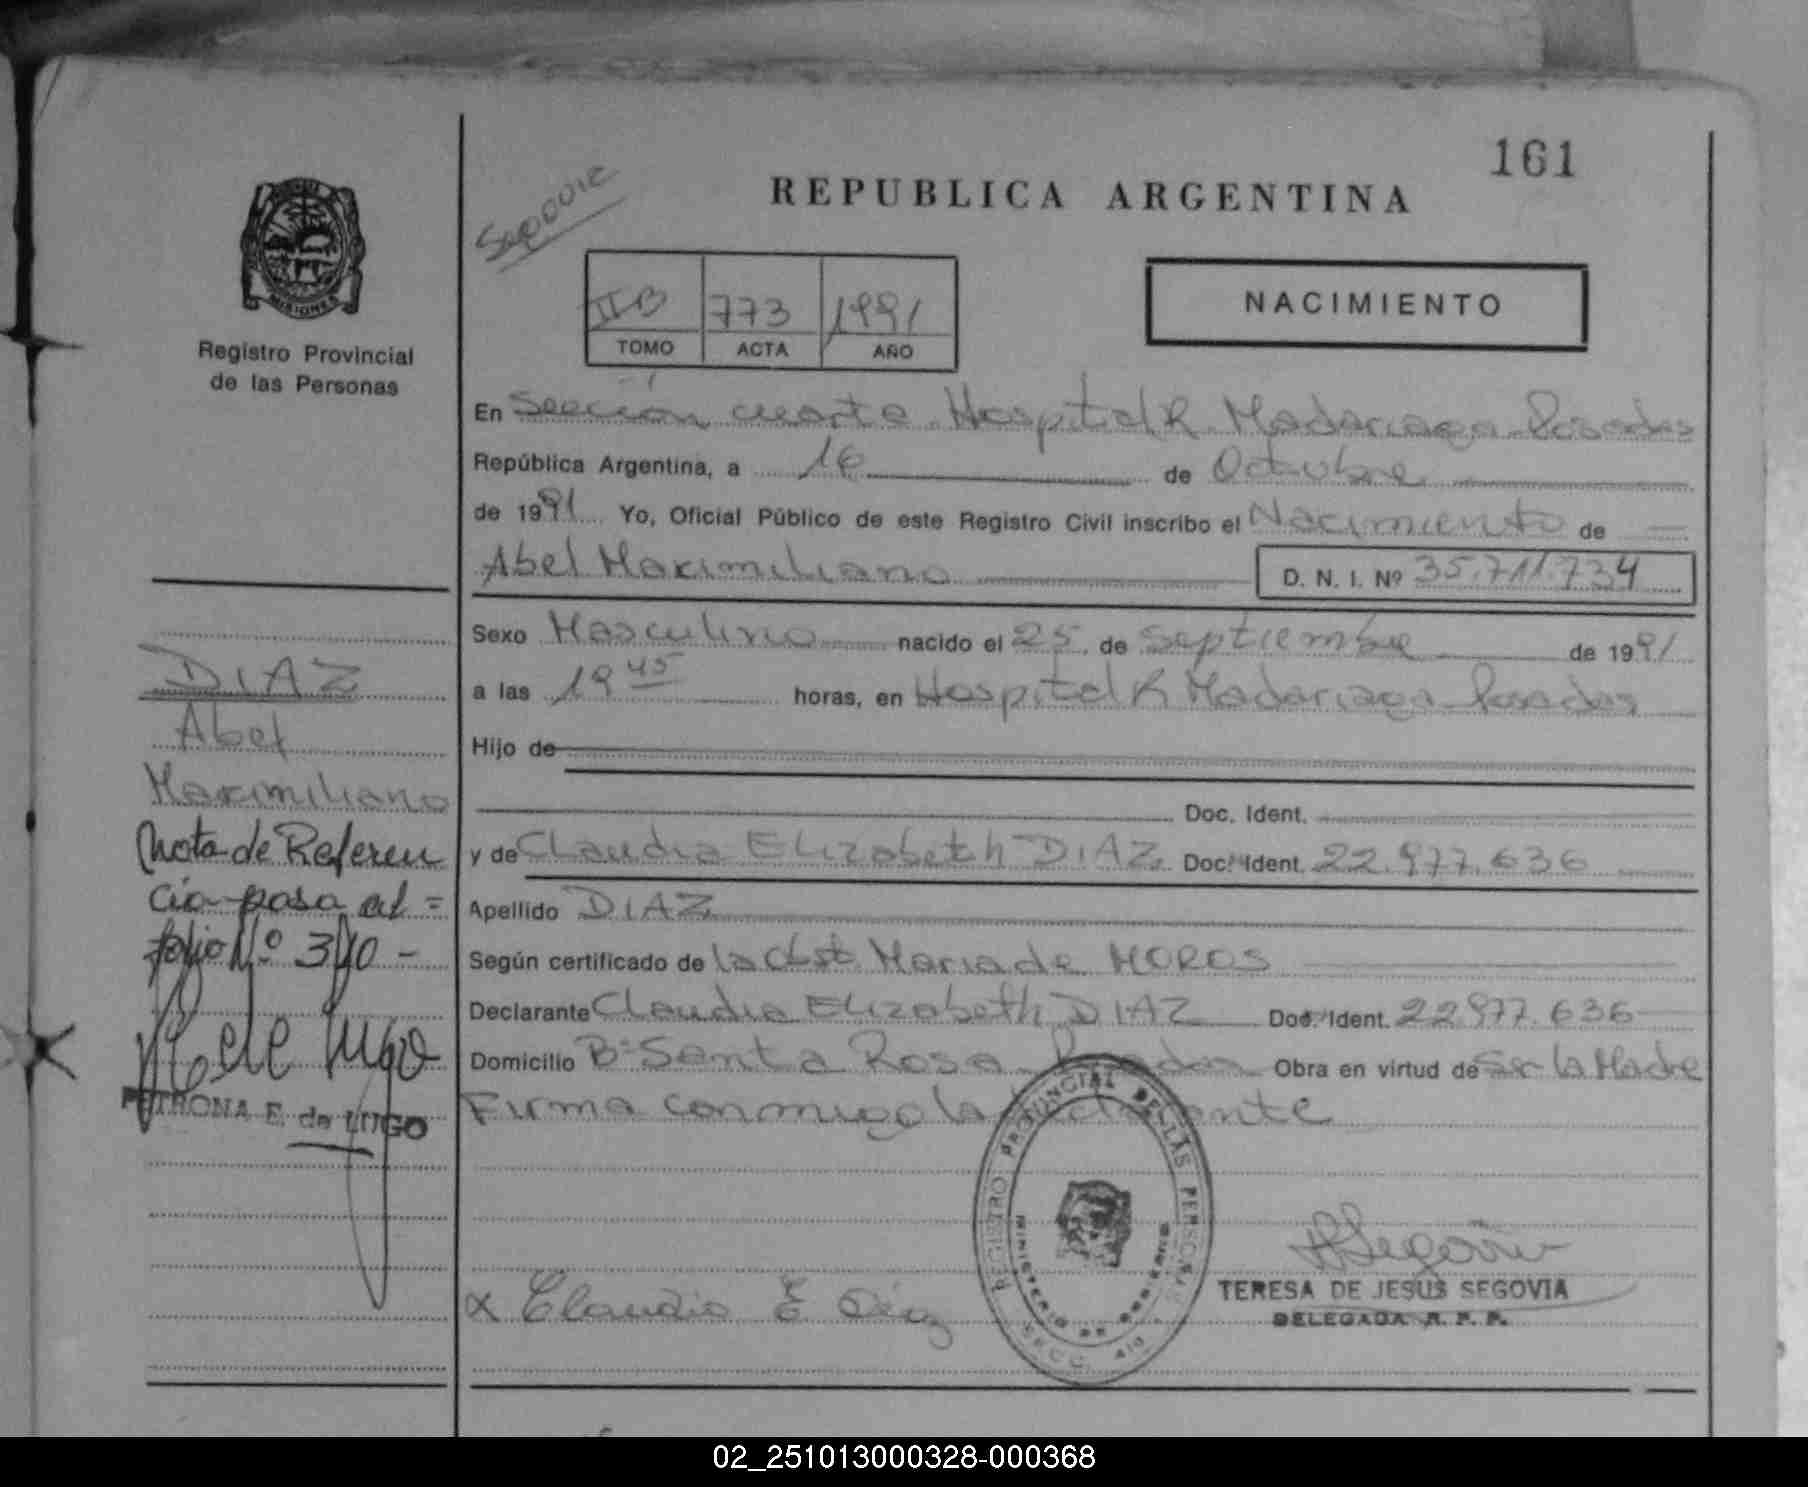 161
REPUBLICA ARGENTINA
MISIONES
Registro Provincial
de las Personas
II B 773 1991
TOMO ACTA AÑO
NACIMIENTO
En Sección cuarta Hospital R Madariaga Posadas
República Argentina, a 16 de Octubre
de 1991 Yo, Oficial Público de este Registro Civil inscribo el Nacimiento de
Abel Maximiliano D. N. I. Nº 35.711.734
Sexo Masculino nacido el 25 de Septiembre de 1991
a las 19 45 horas, en Hospital R Madariaga Posadas
Hijo de
Doc. Ident.
y de Claudia Elizabeth DIAZ Doc. Ident. 22.977.636
Apellido DIAZ
Según certificado de la Obst. Maria de MOROS
Declarante Claudia Elizabeth DIAZ Doc. Ident. 22.977.636
Domicilio Bº Santa Rosa Posadas Obra en virtud de Ser la Madre
Firma conmigo la
DIAZ
Abel
Maximiliano
Nota de Referen
cia pasa al =
folio Nº 340 -
PETRONA E. de LUGO
REGISTRO PROVINCIAL DE LAS PERSONAS
MINISTERIO DE GOBIERNO
Claudia E Díaz
TERESA DE JESUS SEGOVIA
DELEGADA R. P. P.
02_251013000328-000368